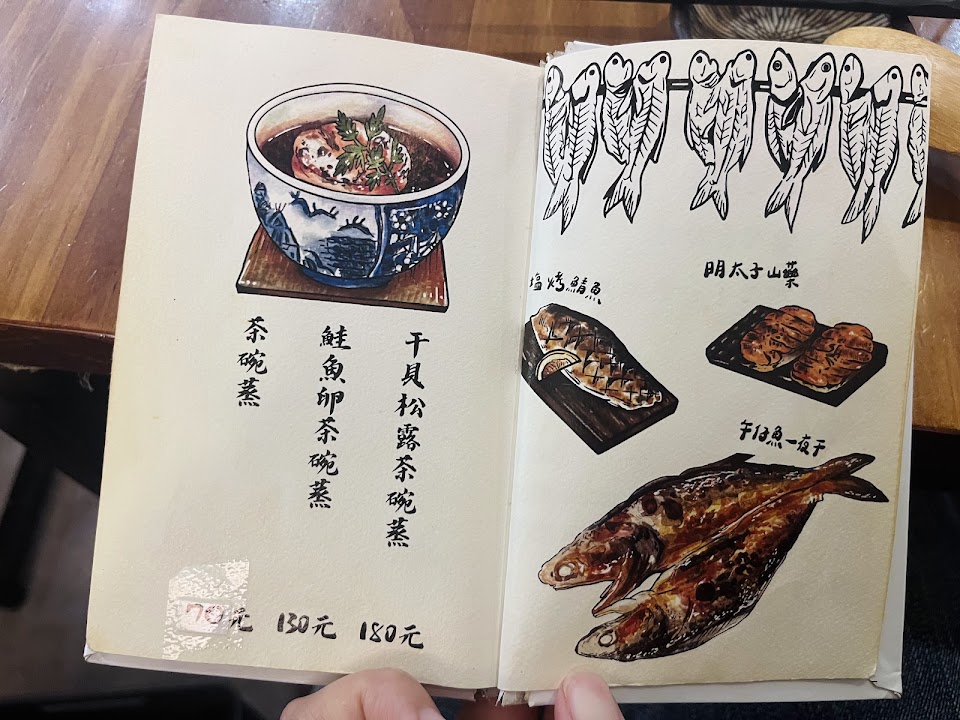 干貝松露茶碗蒸
鮭魚卵茶碗蒸
茶碗蒸
180元
130元
70元
明太子山藥
塩烤鯖魚
午仔魚一夜干